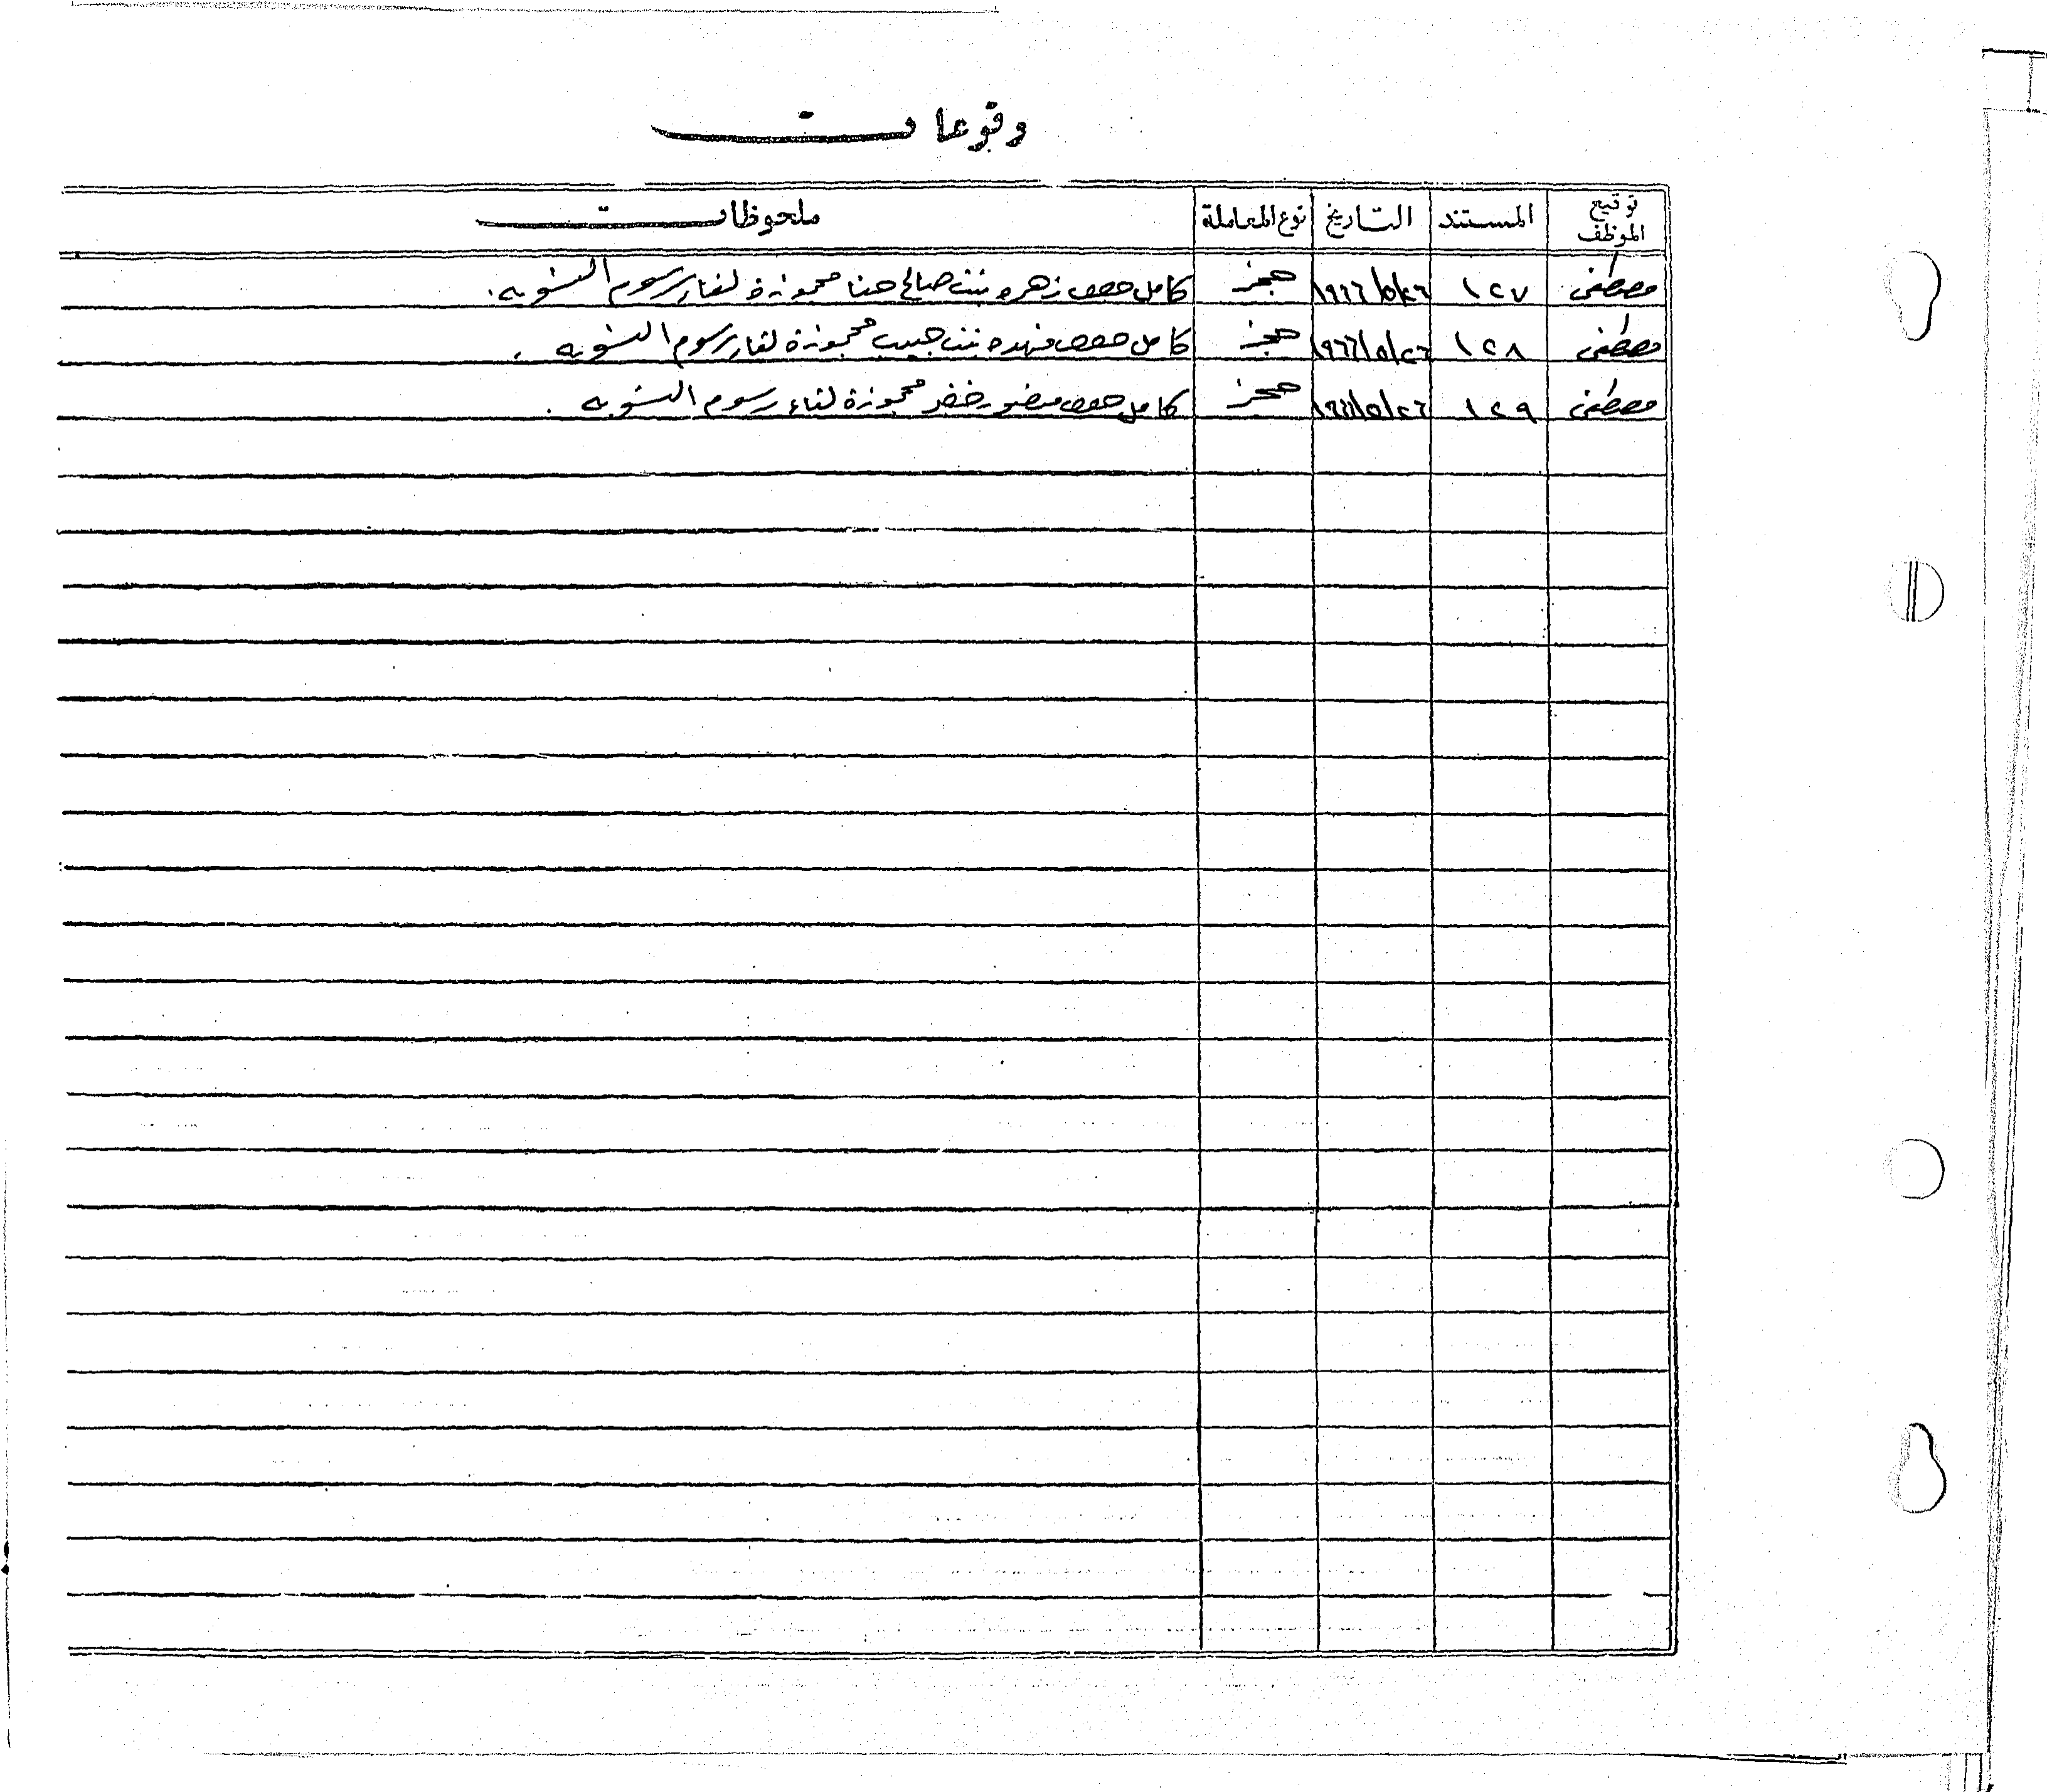 وقوعات
توقيع الموظف المستند التاريخ نوع المعاملة ملحوظات
مصطفى ١٢٧ ١٩٦٦/٥/٢٦ حجز كامل حصص زهره بنت صالح حنا محجوزة لقاء رسوم التسويه.
مصطفى ١٢٨ ١٩٦٦/٥/٢٦ حجز كامل حصص فهده بنت حبيب محجوزة لقاء رسوم التسويه.
مصطفى ١٢٩ ١٩٦٦/٥/٢٦ حجز كامل حصص منصور خضر محجوزة لقاء رسوم التسويه.